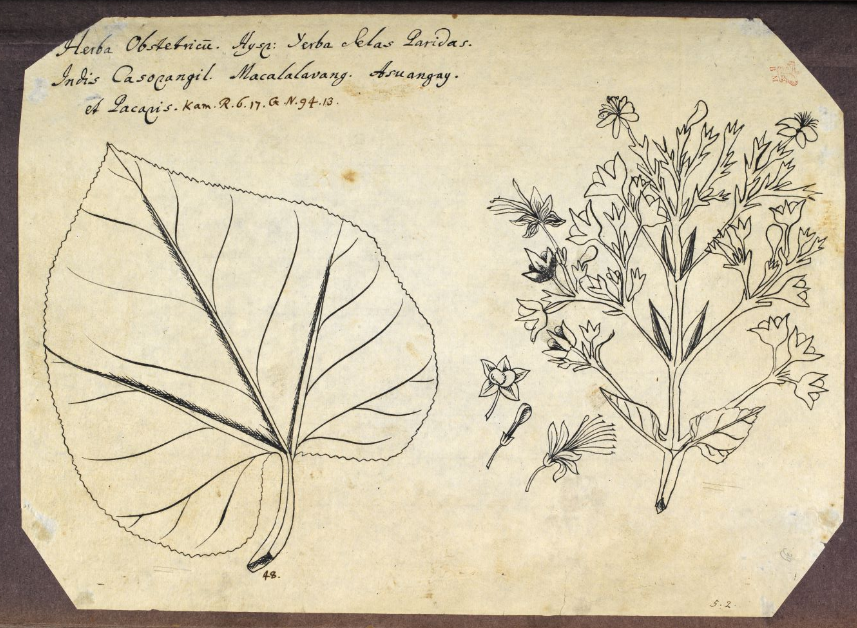 Herba Obstetricũ. Hysp: Yerba delas Paridas.
Indis Casopangil. Macalalavang. Asuangay.
et Pacapis. Kam. R. 6. 17. G. N. 94. 13.
48.
5. 2.